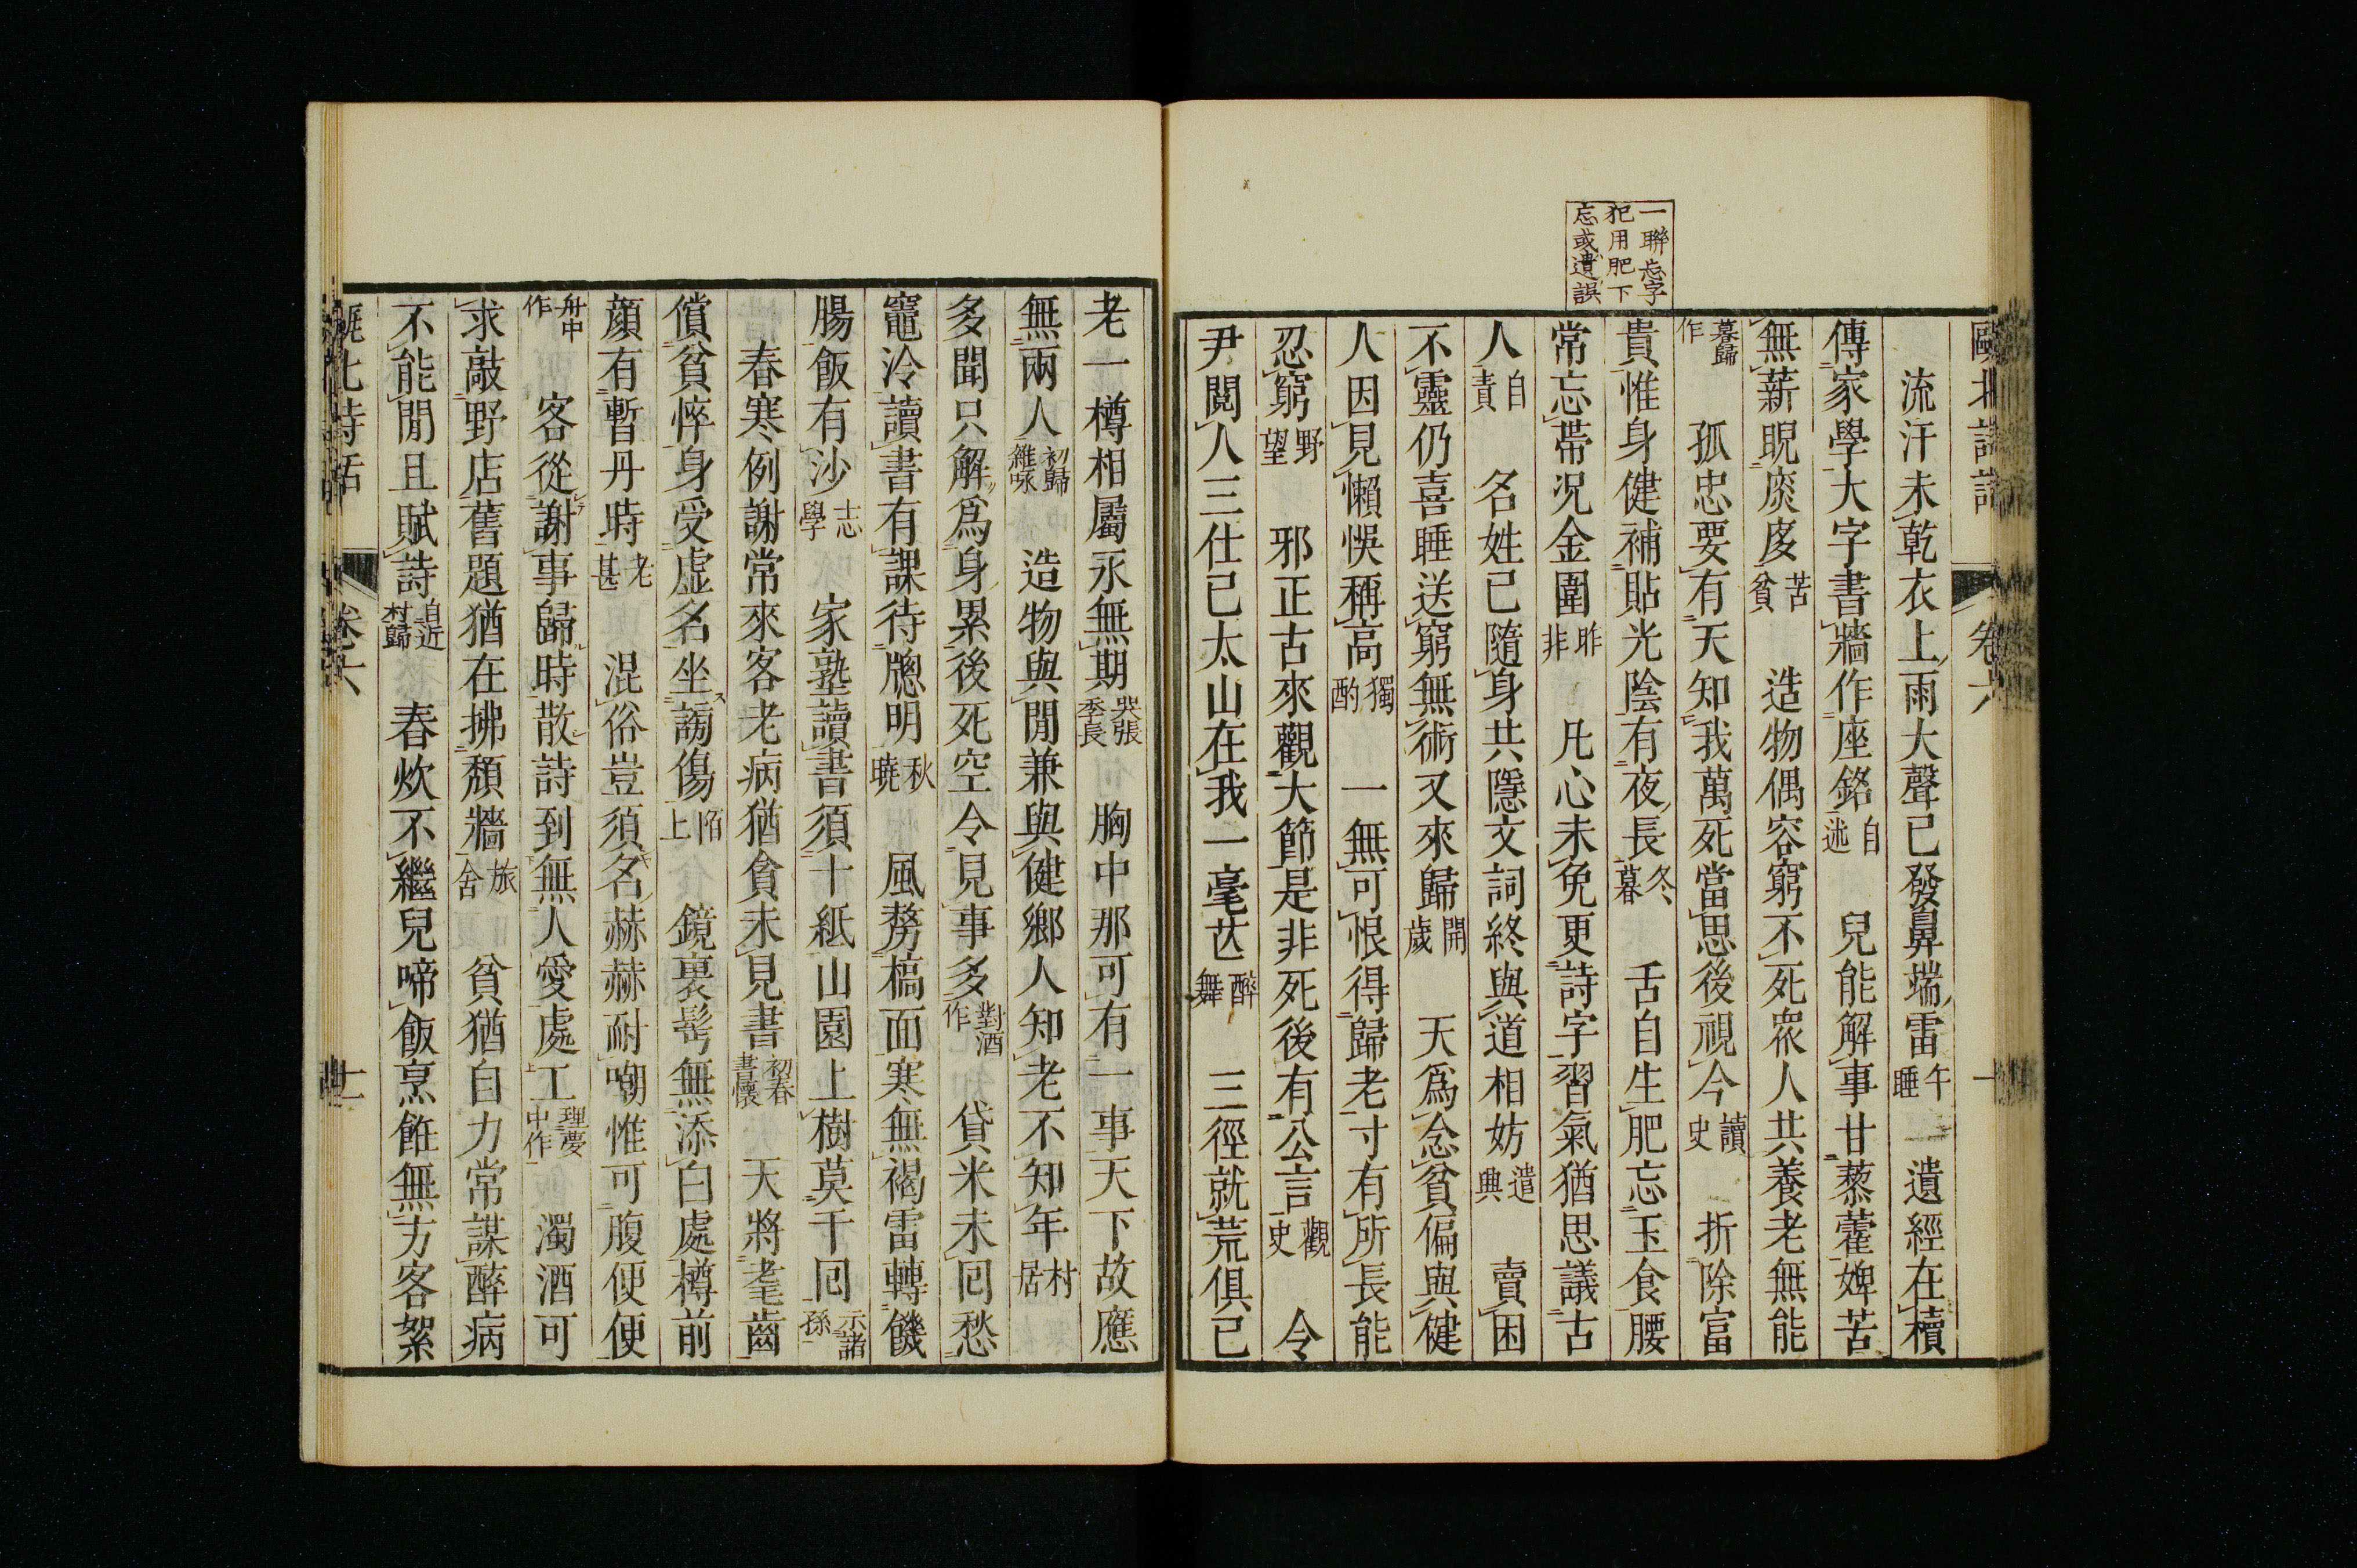 一聯忘字
犯用肥下
忘或遺誤
甌北詩話 卷六
流汗未乾衣上雨大聲已發鼻端雷午睡 遺經在櫝
傳家學大字書牆作座銘自述 兒能解事甘藜藿婢苦
無薪睨扊扅苦貧 造物偶容窮不死衆人共養老無能
暮歸作 孤忠要有天知我萬死當思後視今讀史 折除富
貴惟身健補貼光陰有夜長冬暮 舌自生肥忘玉食腰
常忘帶況金圍昨非 凡心未免更詩字習氣猶思議古
人自責 名姓已隨身共隱文詞終與道相妨遣興 賣困
不靈仍喜睡送窮無術又來歸開歲 天爲念貧偏與健
人因見懶悞稱高獨酌 一無可恨得歸老寸有所長能
忍窮野望 邪正古來觀大節是非死後有公言觀史 令
尹閱人三仕已太山在我一毫芒醉舞 三徑就荒俱已
老一樽相屬永無期哭張季長 胸中那可有一事天下故應
無兩人初歸雜咏 造物與閒兼與健鄉人知老不知年村居
多聞只解爲身累後死空令見事多對酒作 貸米未回愁
竈冷讀書有課待牕明秋曉 風霧槁面寒無褐雷轉饑
腸飯有沙志學 家塾讀書須十紙山園上樹莫千回示諸孫
春寒例謝常來客老病猶貪未見書初春書懷 天將耄齒
償貧悴身受虛名坐謗傷陌上 鏡裏髩無添白處樽前
顔有暫丹時老甚 混俗豈須名赫赫耐嘲惟可腹便便
舟中作 客從謝事歸時散詩到無人愛處工理夢中作 濁酒可
求敲野店舊題猶在拂頹牆旅舍 貧猶自力常謀醉病
不能閒且賦詩自近村歸 春炊不繼兒啼飯烹飪無方客絮
甌北詩話 卷六 十一